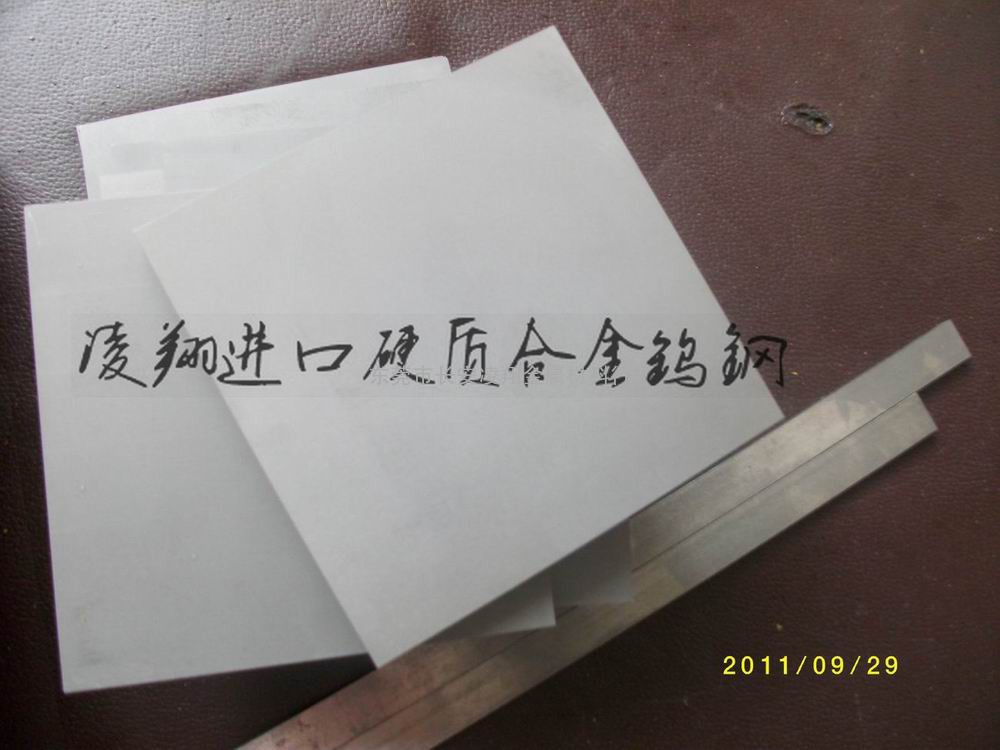 凌翔进口硬质合金钨钢
2011/09/29